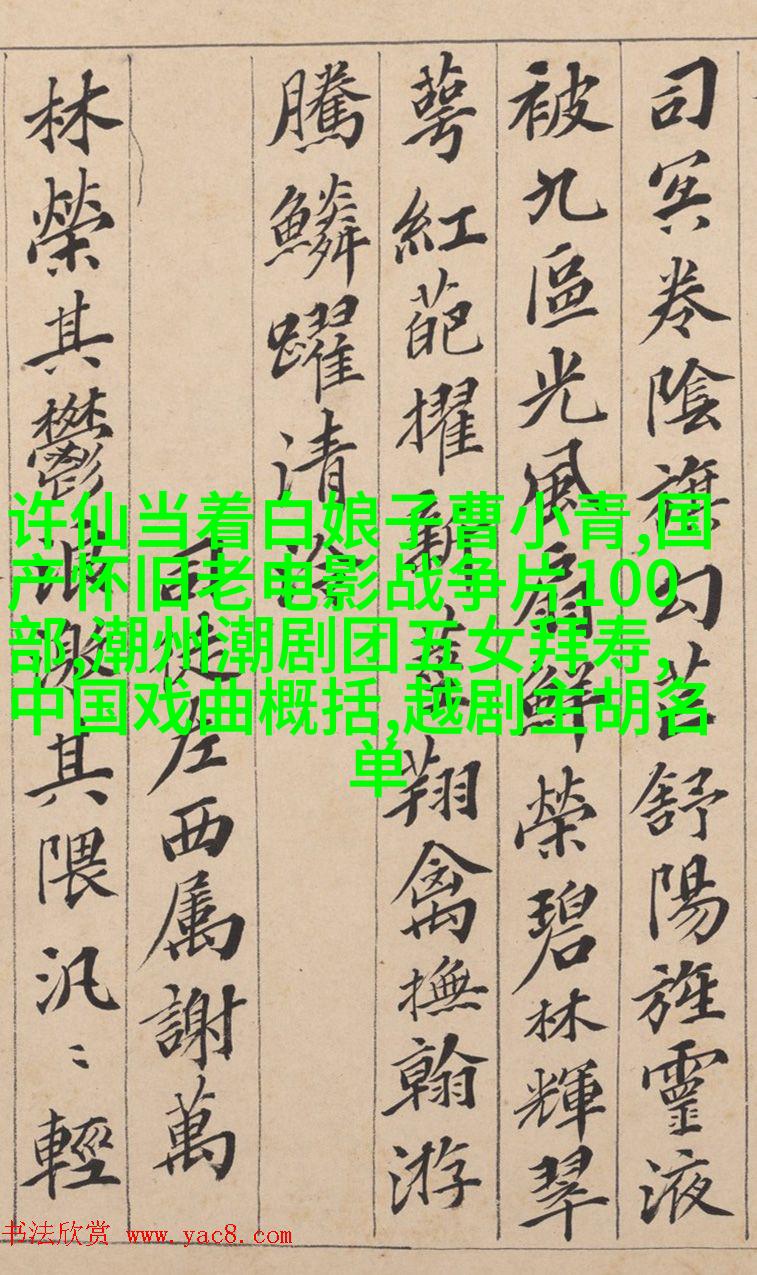 司冥卷陰旗勾芒舒陽旌靈液
被九區光風扇鮮榮碧林輝翠
萼紅葩擢新莖翔禽撫翰游
騰鱗躍清泠
司徒左西属謝萬
林榮其鬱浪激其隈汎〻輕
许仙当着白娘子曹小青,国
产怀旧老电影战争片100
部,潮州潮剧团五女拜寿,
中国戏曲概括,越剧主胡名
单
书法欣赏 www.yac8.com